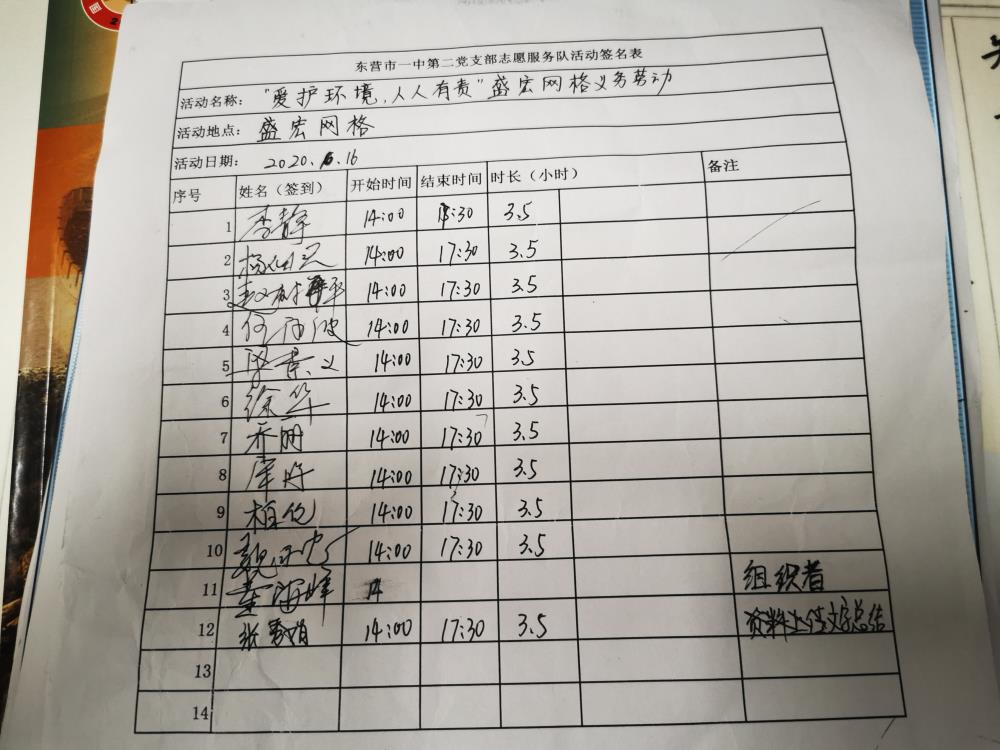 东营市一中第二党支部志愿服务队活动签名表
活动名称： "爱护环境，人人有责"盛宏网格义务劳动
活动地点： 盛宏网格
活动日期： 2020.6.16
序号 姓名（签到） 开始时间 结束时间 时长（小时） 备注
1 李静 14:00 17:30 3.5
2 14:00 17:30 3.5
3 14:00 17:30 3.5
4 14:00 17:30 3.5
5 14:00 17:30 3.5
6 徐华 14:00 17:30 3.5
7 乔丽 14:00 17:30 3.5
8 14:00 17:30 3.5
9 14:00 17:30 3.5
10 14:00 17:30 3.5
11 董海峰 14 组织者
12 14:00 17:30 3.5 资料上传文字总结
13
14